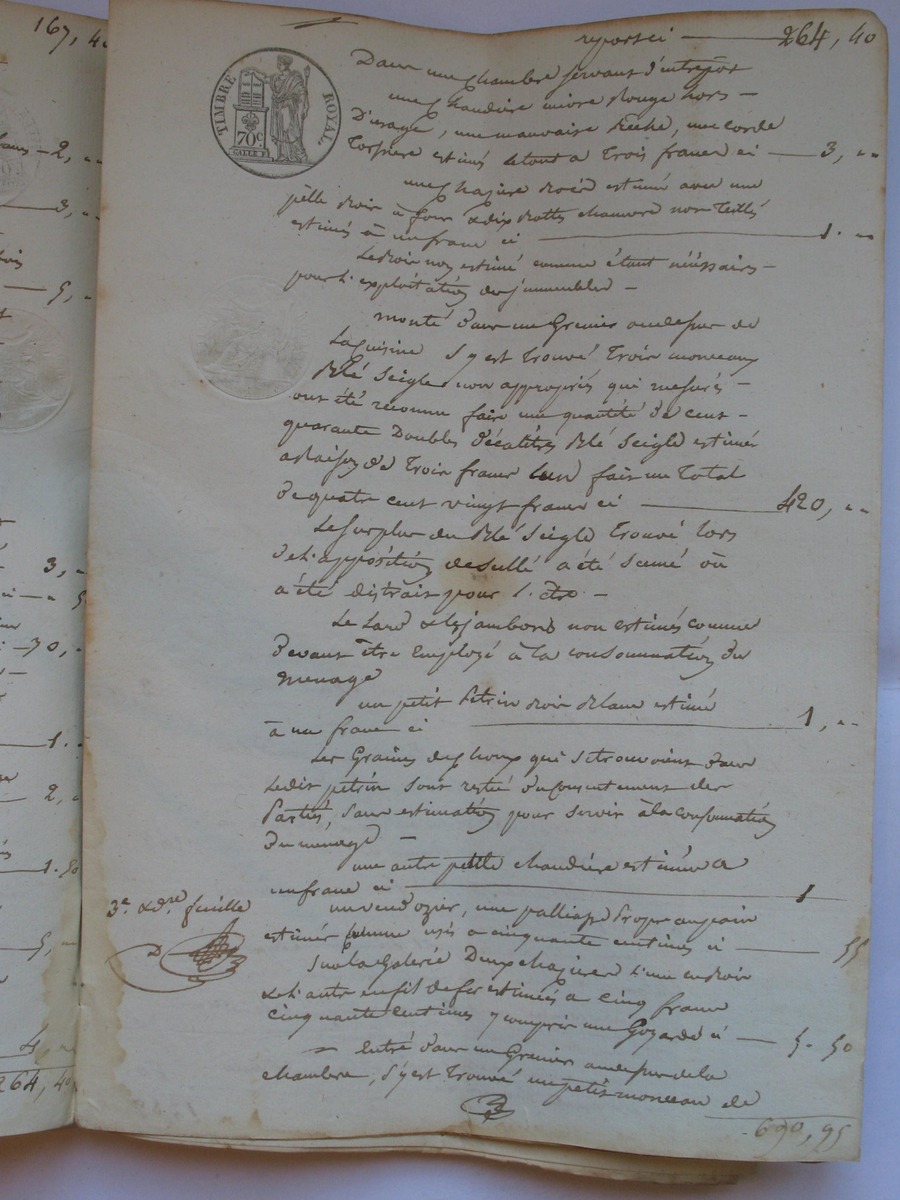 167, 4
reporté ci 264, 40
TIMBRE ROYAL
70 c.
Dans une chambre servant d'intrepôt
une chaudière cuivre Rouge hors
D'usage, une mauvaise Bêche, une corde
estimés letout a trois francs ci 3, "
une estimé avec une
pelle à four & dix chanvre non
estimés à un franc ci 1. "
non estimé comme étant nécéssaire
pour l'exploitation des immeubles
monté dans un Grenier audessus de
La Cuisine s'y est trouvé trois monceaux
Blé seigle non appropriés qui mesurés
ont été reconnu faire une quantité de cent
quarante Doubles Décalitres Blé seigle estimés
a Raison de trois francs L'un fait un total
de quatre cent vingt francs ci 420, "
Le surplus du Blé seigle trouvé lors
de l'apposition des a été semé ou
a été distrait pour l'être
Le Lard & les jambons non estimés comme
Devant être Employé à la consommation du
menage
un petit Pétrin estimé
à un franc ci 1, "
Les Graines de choux qui se trouvoient dans
Ledit pétrin sont resté du consentement des
Parties, sans estimation pour servir à la consommation
Du menage
une autre petite chaudière estimée a
un franc ci 1
un une Propre au pain
estimés comme usés a cinquante centimes ci 55
Sur la Galerie Deux l'une
& L'autre en fil de fer estimées a Cinq francs
Cinquante Centimes y compris une ci 5. 50
Entré dans un Grenier audessus de la
chambre, s'y est trouvé un petit monceau de
690, 95
3e & dre feuille
2, "
3, "
5, "
3, "
70, "
1. "
2, "
1. 50
5, "
264, 40